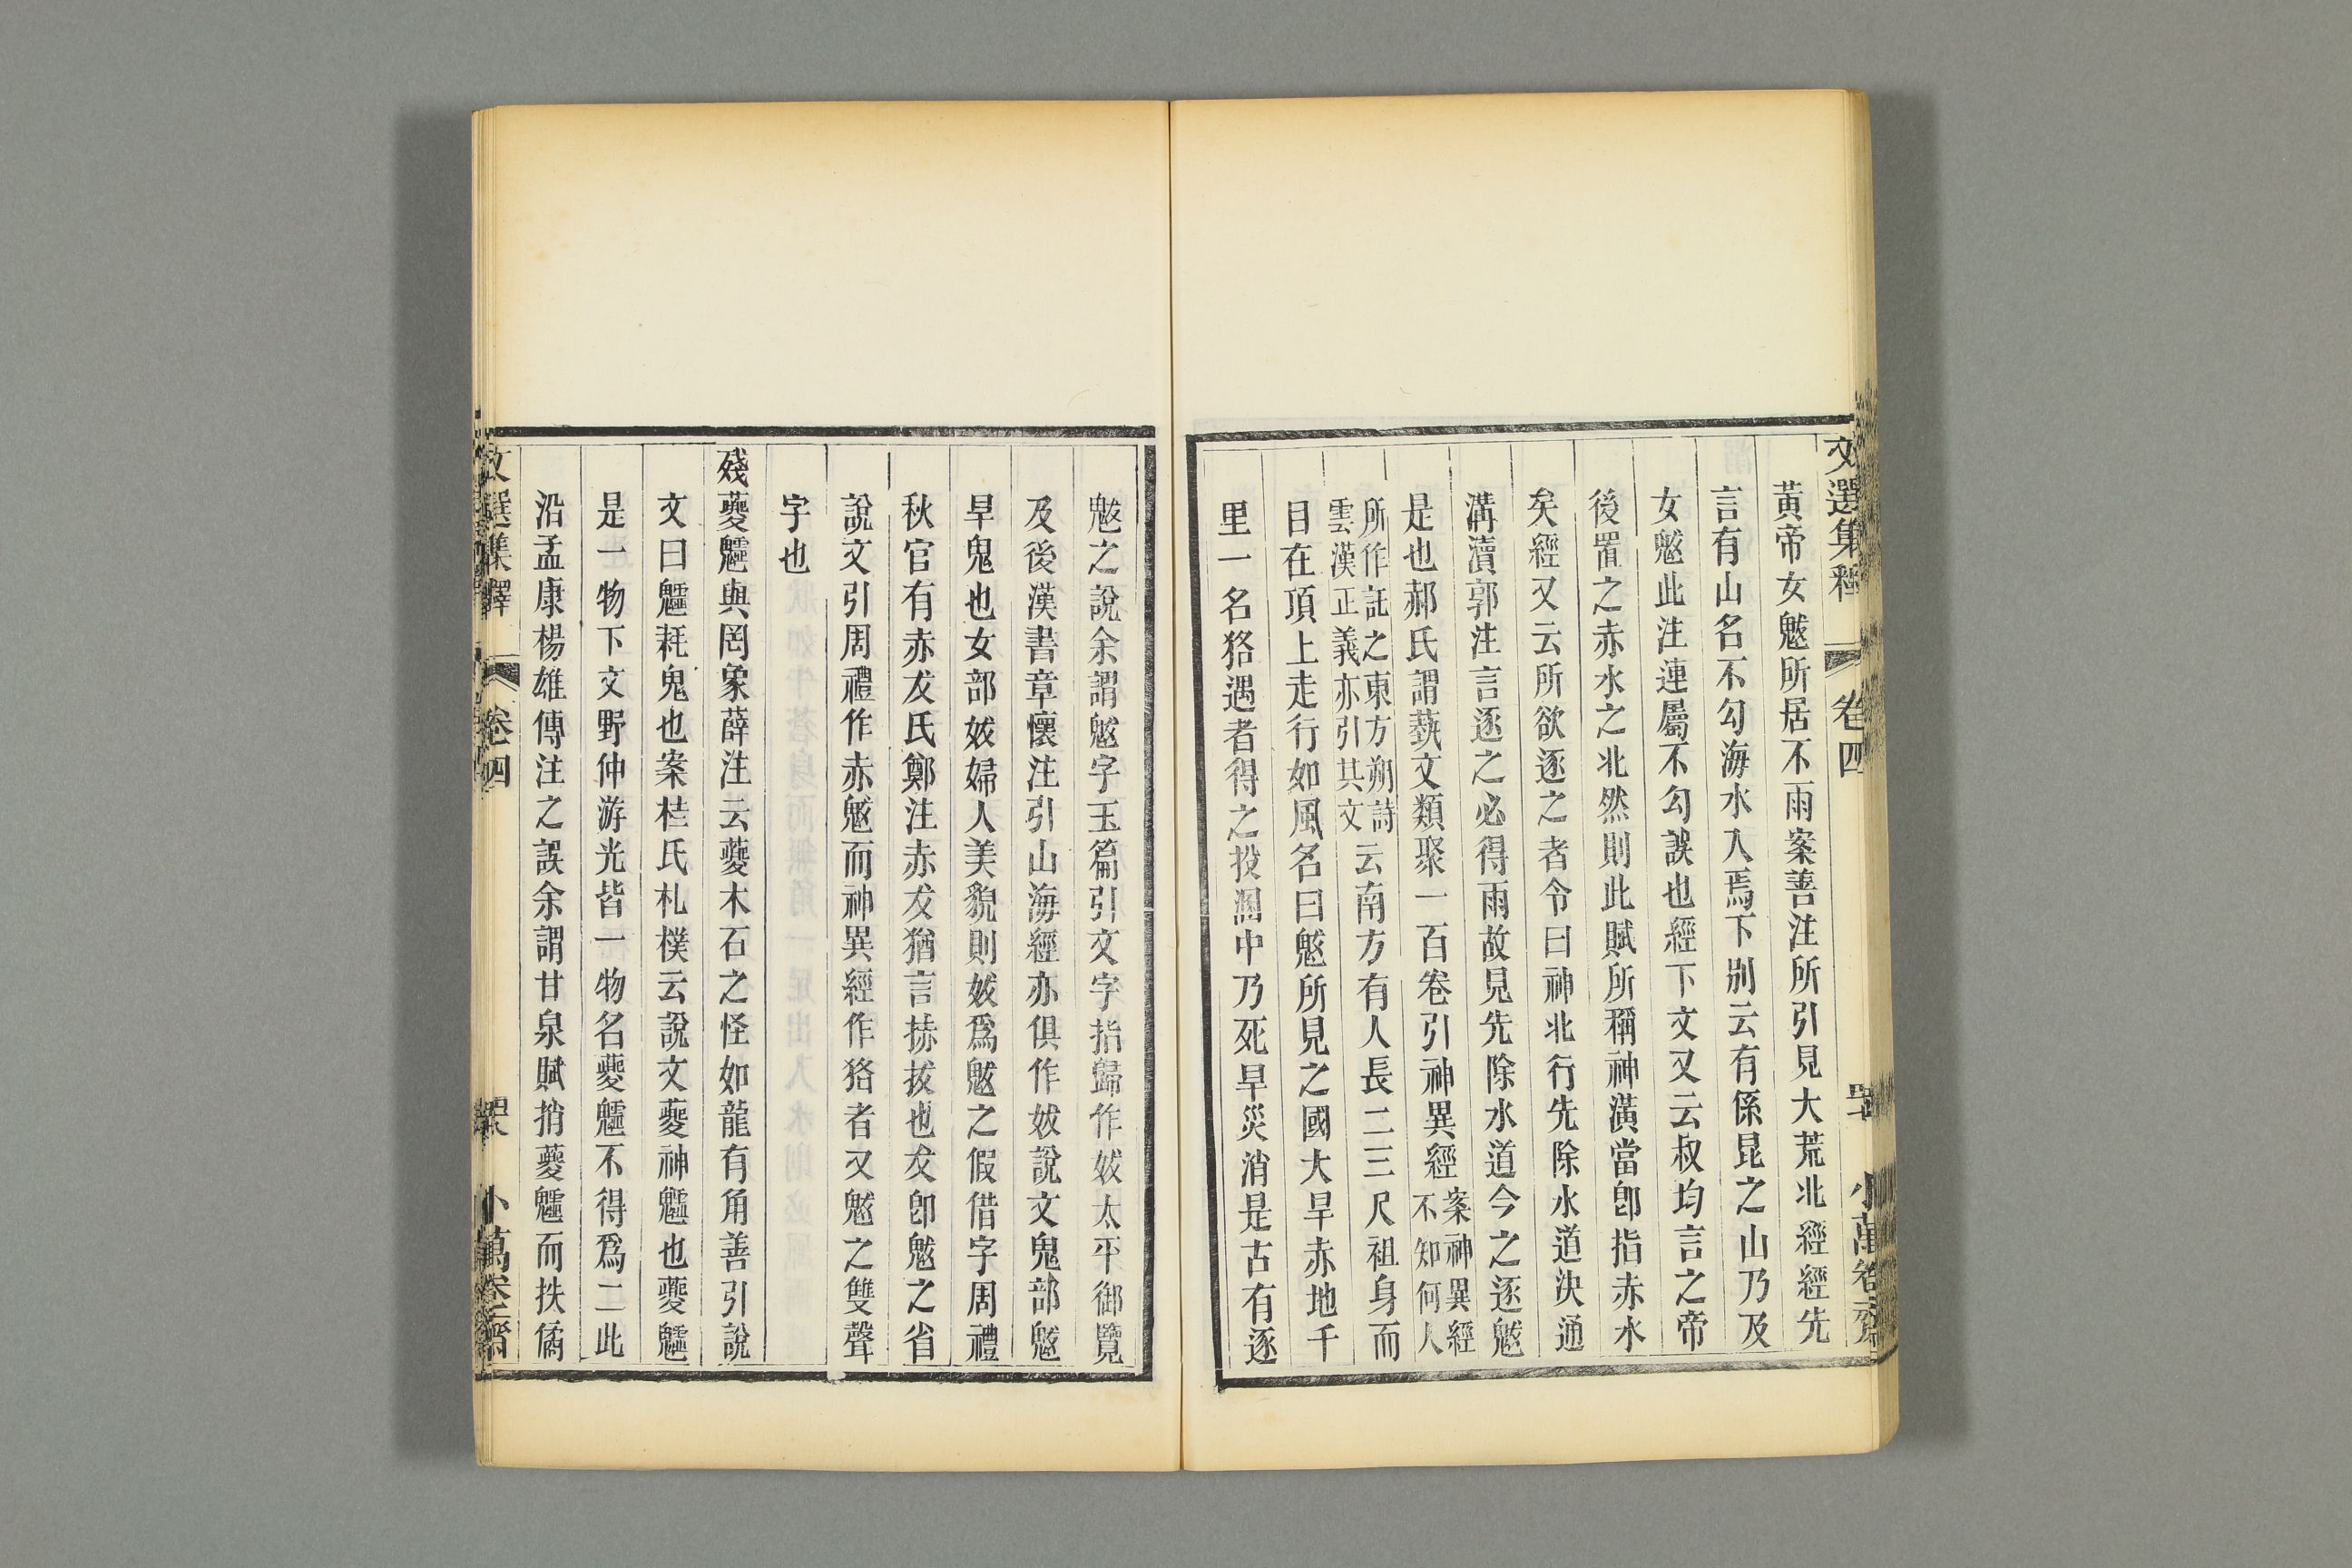 文選集釋 卷四 小萬卷齋
黃帝女魃所居不雨案善注所引見大荒北經經先
言有山名不勾海水入焉下別云有係昆之山乃及
女魃此注連屬不勾誤也經下文又云叔均言之帝
後置之赤水之北然則此賦所稱神潢當卽指赤水
矣經又云所欲逐之者令曰神北行先除水道決通
溝瀆郭注言逐之必得雨故見先除水道今之逐魃
是也郝氏謂蓺文類聚一百卷引神異經案神異經不知何人
所作託之東方朔詩雲漢正義亦引其文云南方有人長二三尺祖身而
目在頂上走行如風名曰魃所見之國大旱赤地千
里一名狢遇者得之投溷中乃死旱災消是古有逐
魃之說余謂魃字玉篇引文字指歸作妭太平御覽
及後漢書章懷注引山海經亦俱作妭說文鬼部魃
旱鬼也女部妭婦人美貌則妭爲魃之假借字周禮
秋官有赤犮氏鄭注赤犮猶言捇拔也犮卽魃之省
說文引周禮作赤魃而神異經作狢者又魃之雙聲
字也
殘夔魖與罔象薛注云夔木石之怪如龍有角善引說
文曰魖耗鬼也案桂氏札樸云說文夔神魖也夔魖
是一物下文野仲游光皆一物名夔魖不得爲二此
沿孟康楊雄傳注之誤余謂甘泉賦捎夔魖而抶獝
文選集釋 卷四 小萬卷齋